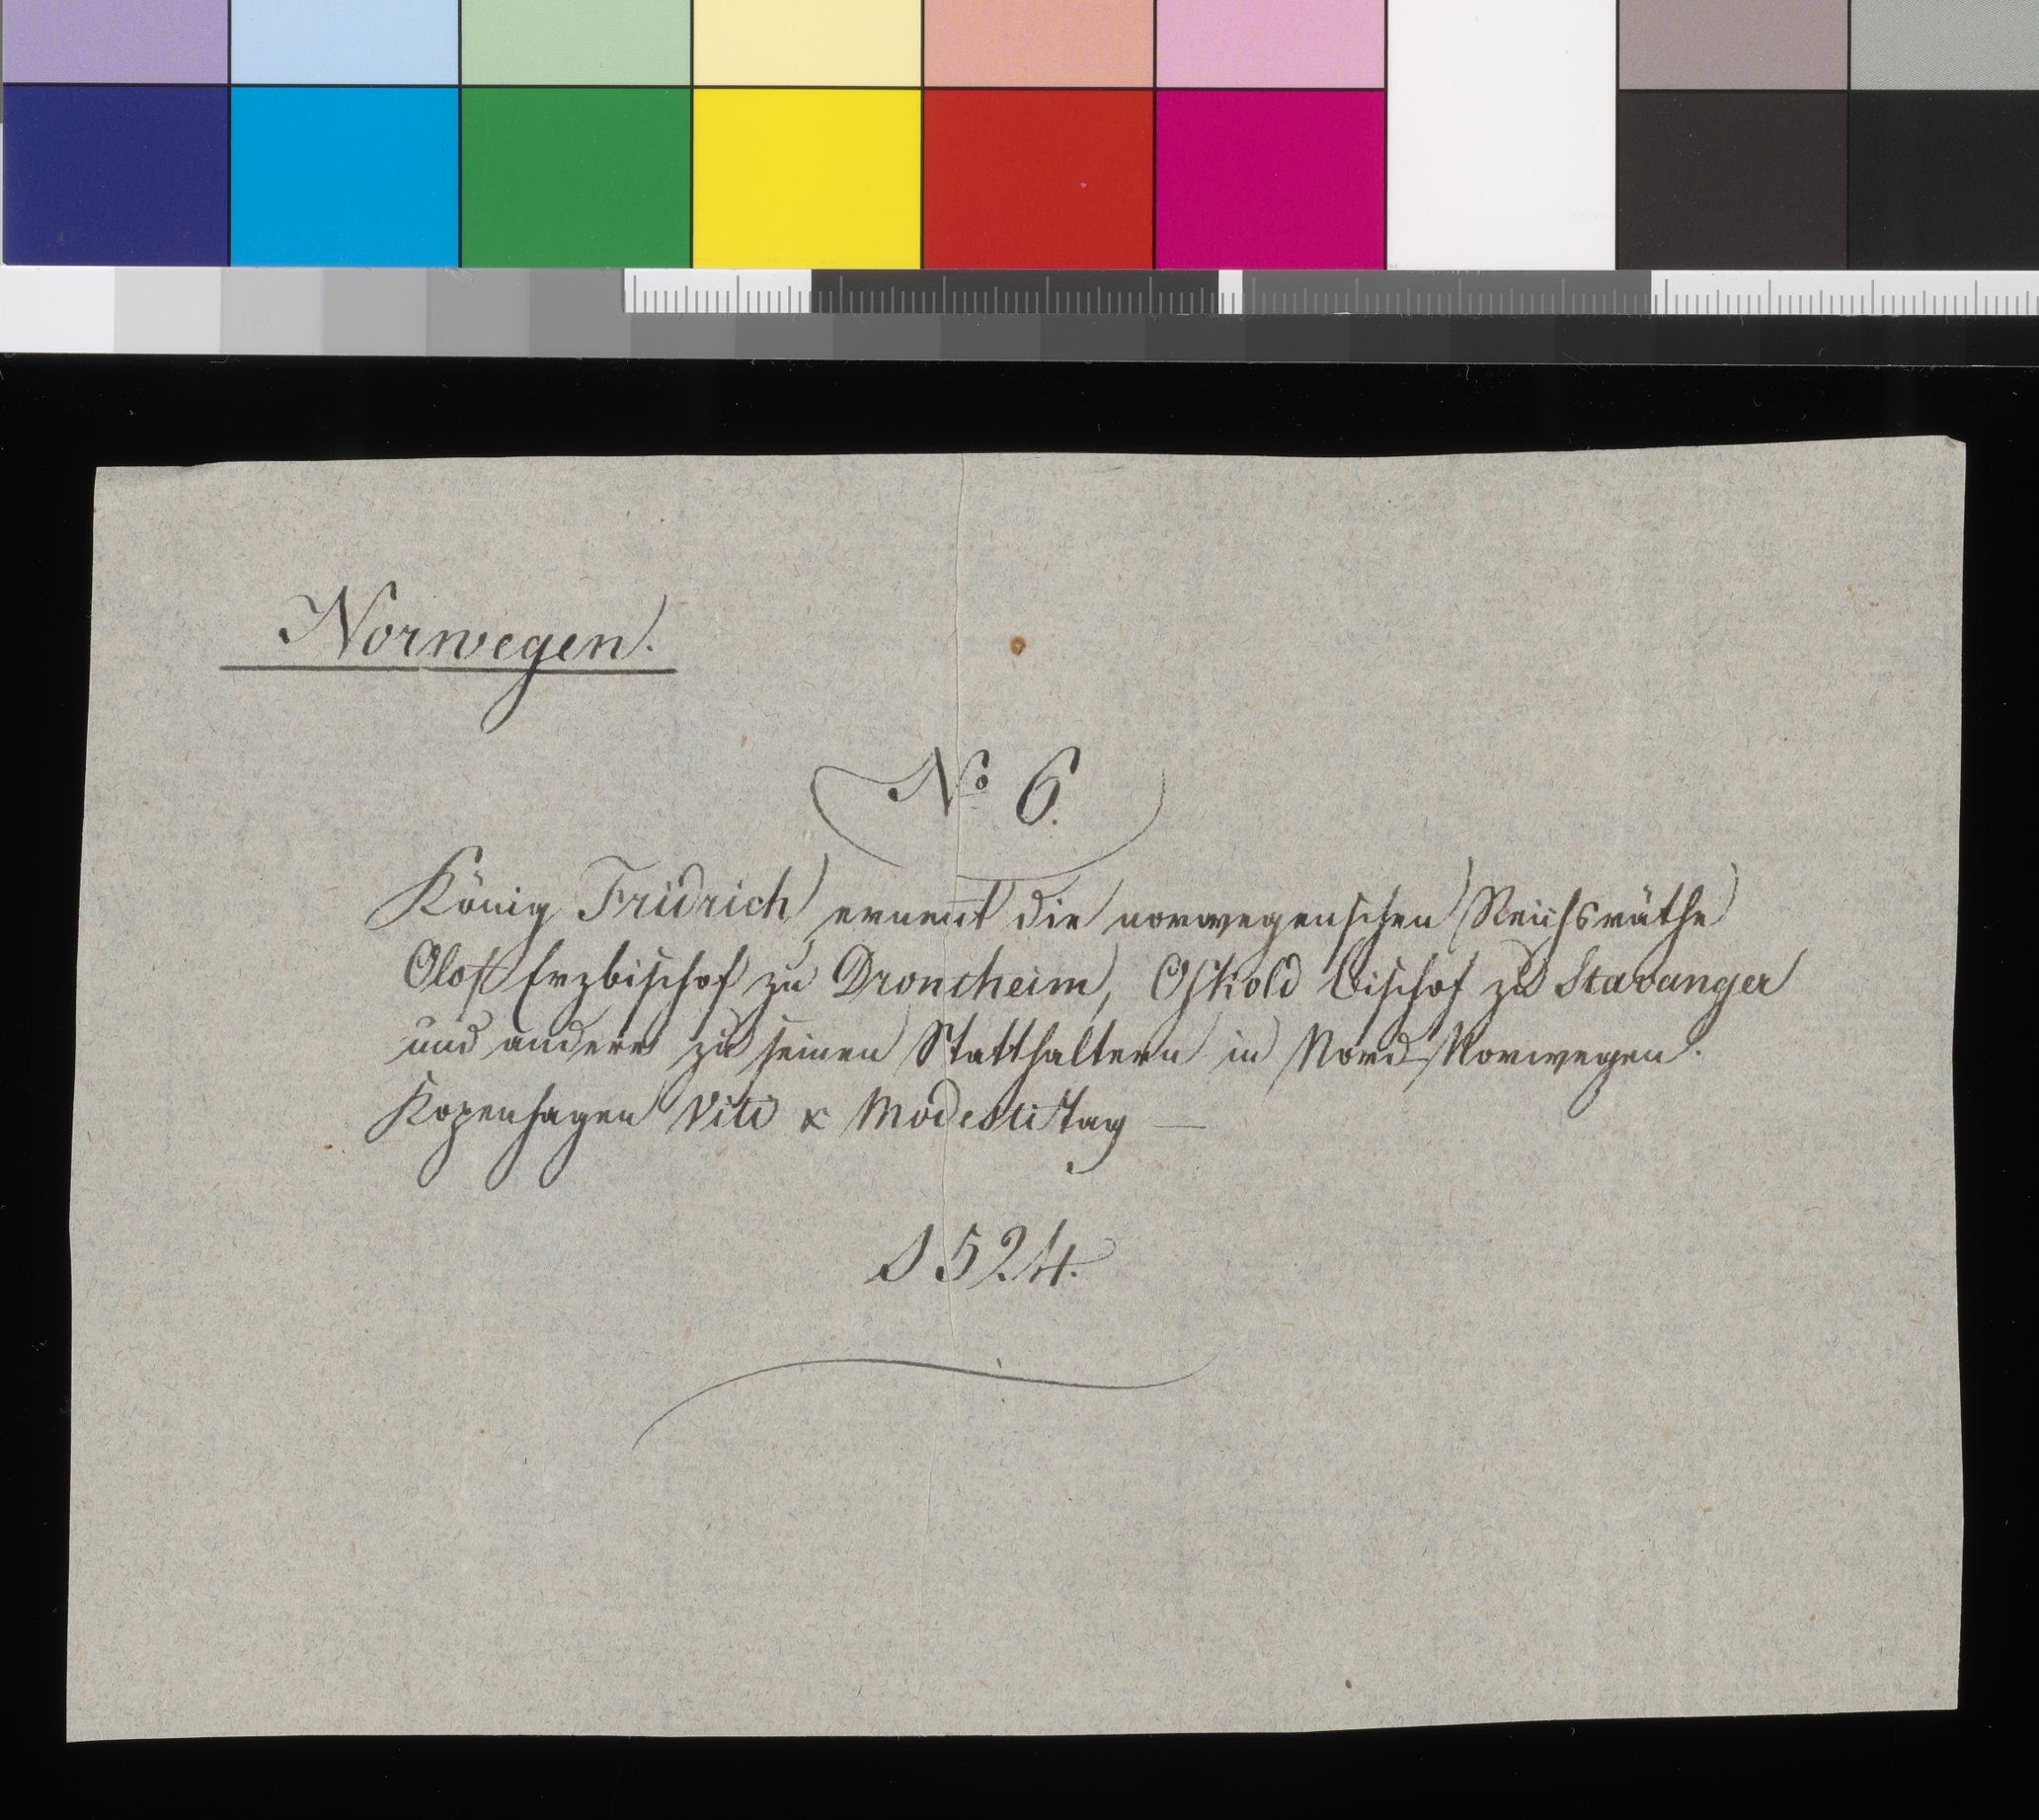 Norwegen.
No 6.
König Fridrich ernent die norwegenschen Reichsräthe
Olof Erzbischof zu Drontheim, Oskold Bischof zu Stavanger
und andere zu seinen Statthaltern in Nord-Norwegen.
Kopenhagen Viti & Modesti Tag —
1524.